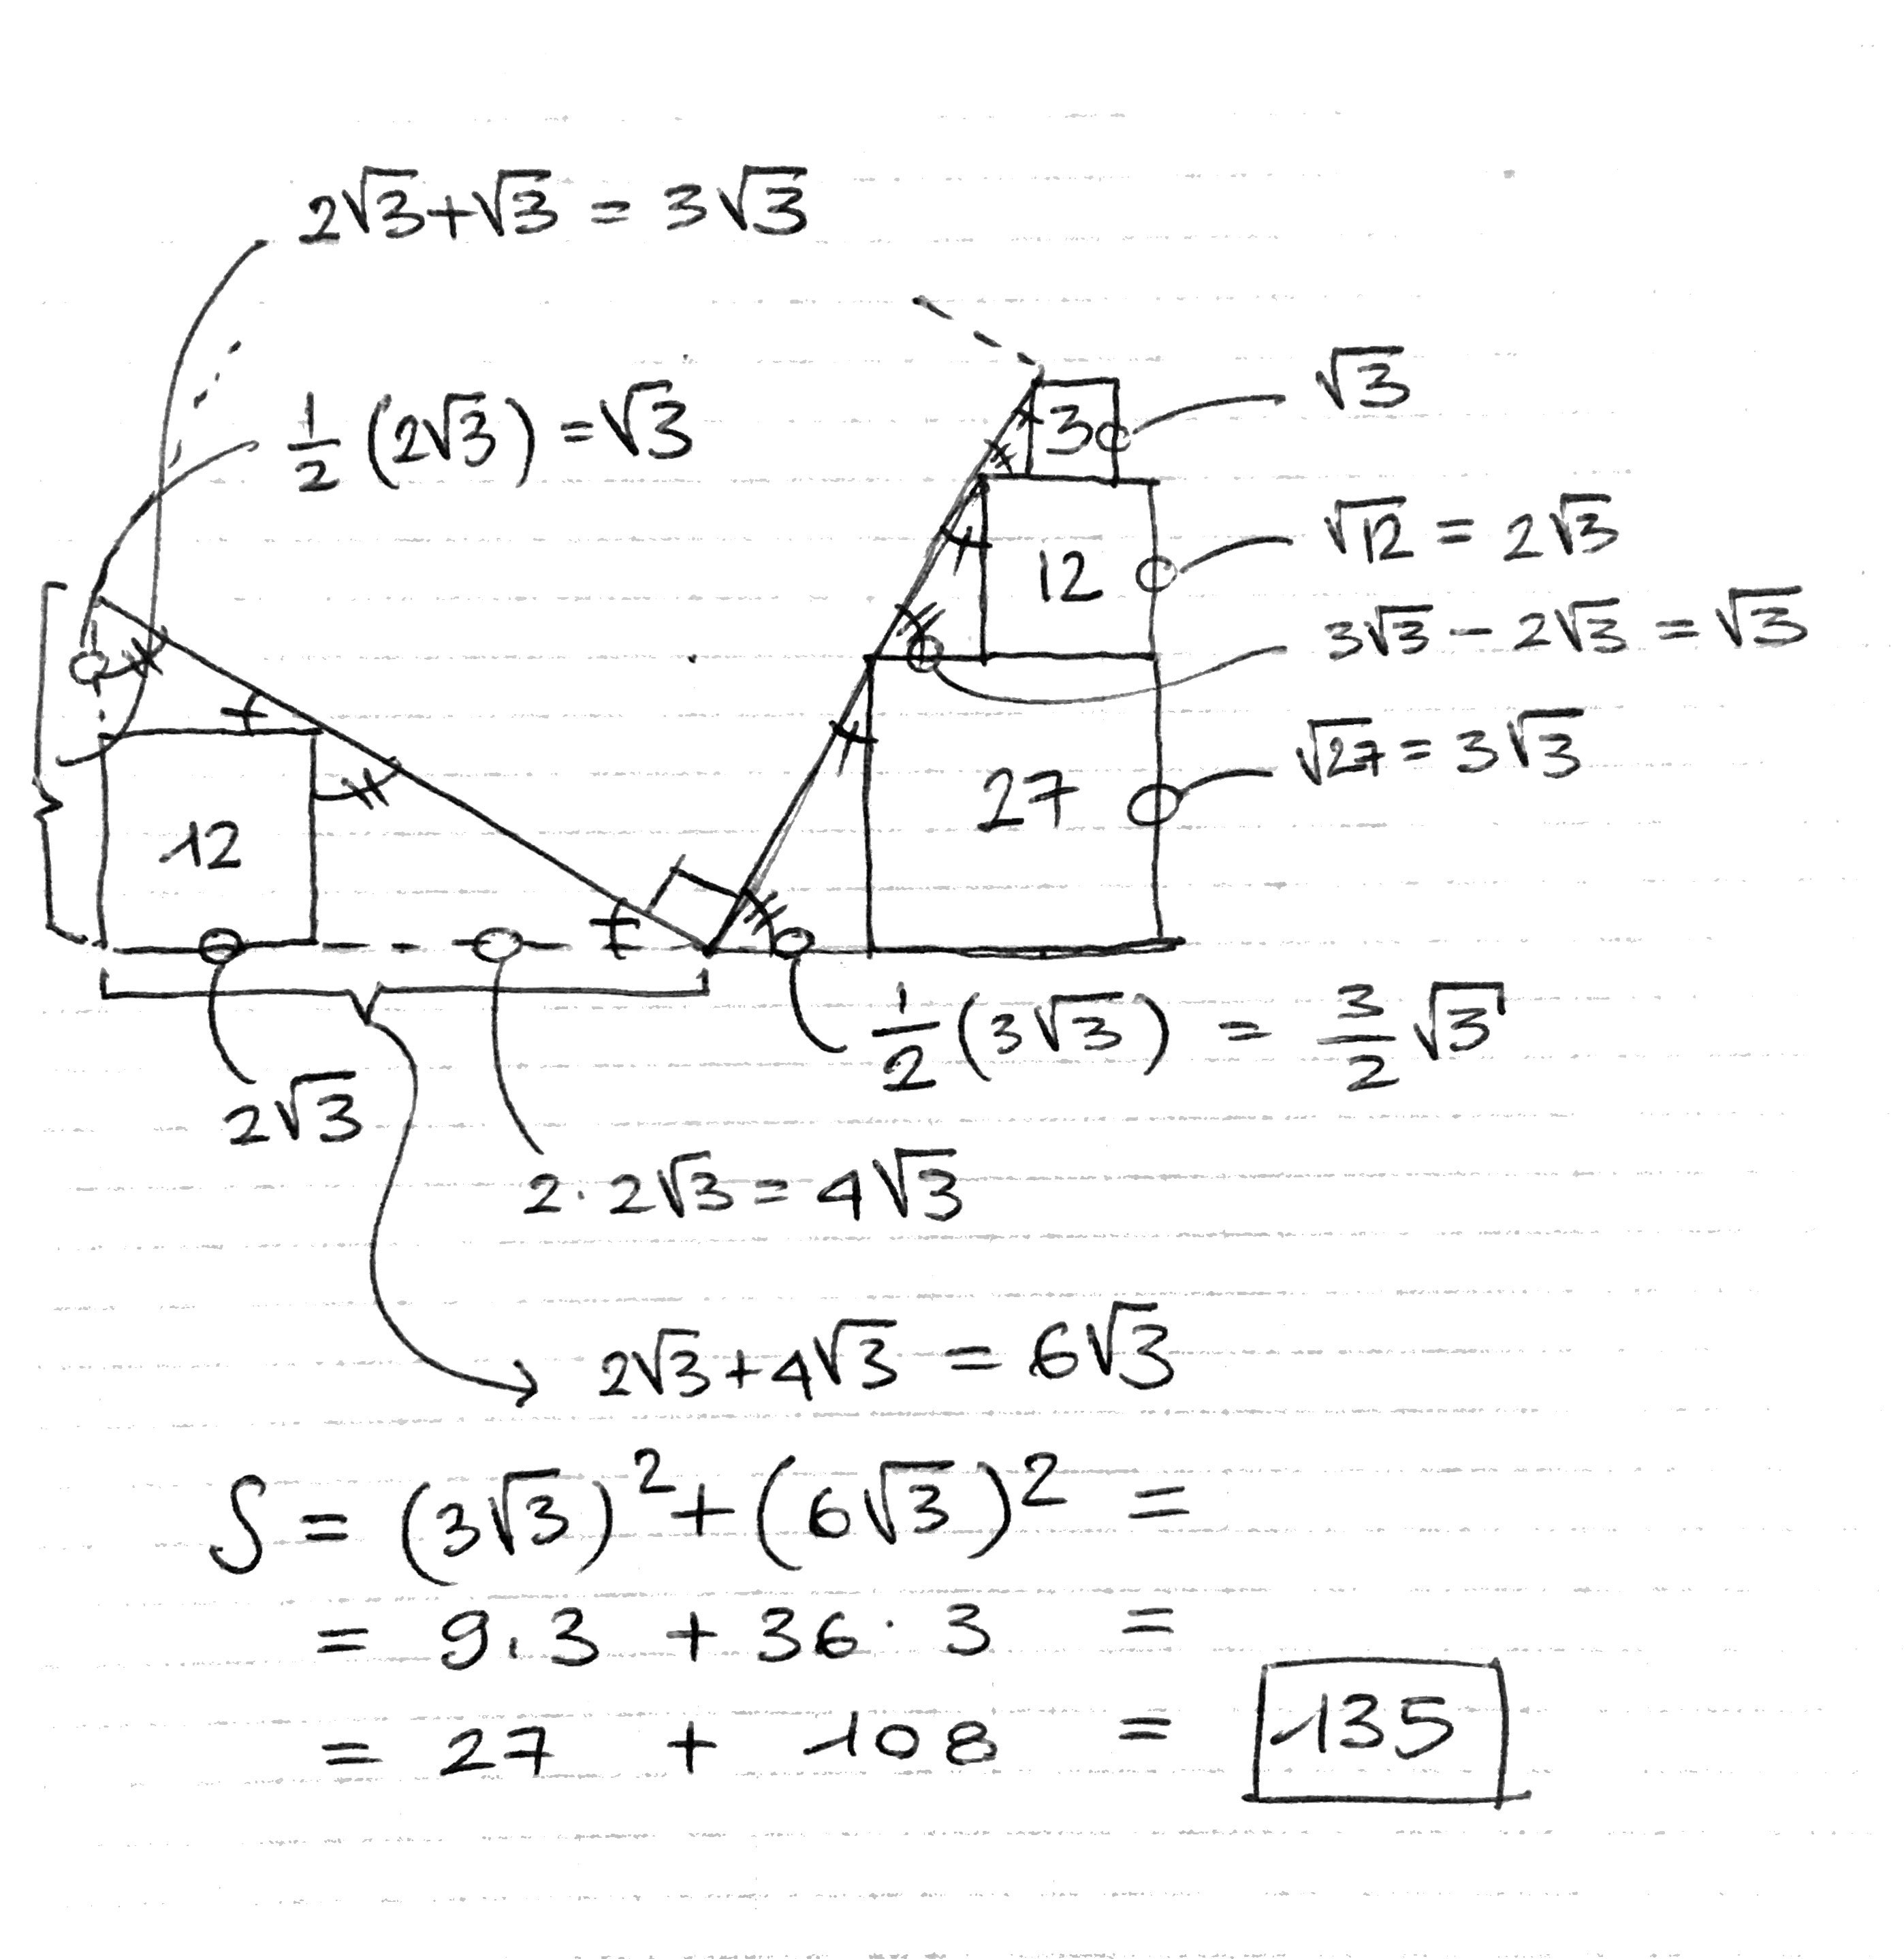 2√3+√3 = 3√3
½ (2√3) = √3
3
√3
12
√12 = 2√3
3√3 − 2√3 = √3
27
√27 = 3√3
12
½ (3√3) = 3/2 √3
2√3
2·2√3 = 4√3
2√3+4√3 = 6√3
S = (3√3)² + (6√3)² =
= 9·3 + 36·3 =
= 27 + 108 = 135